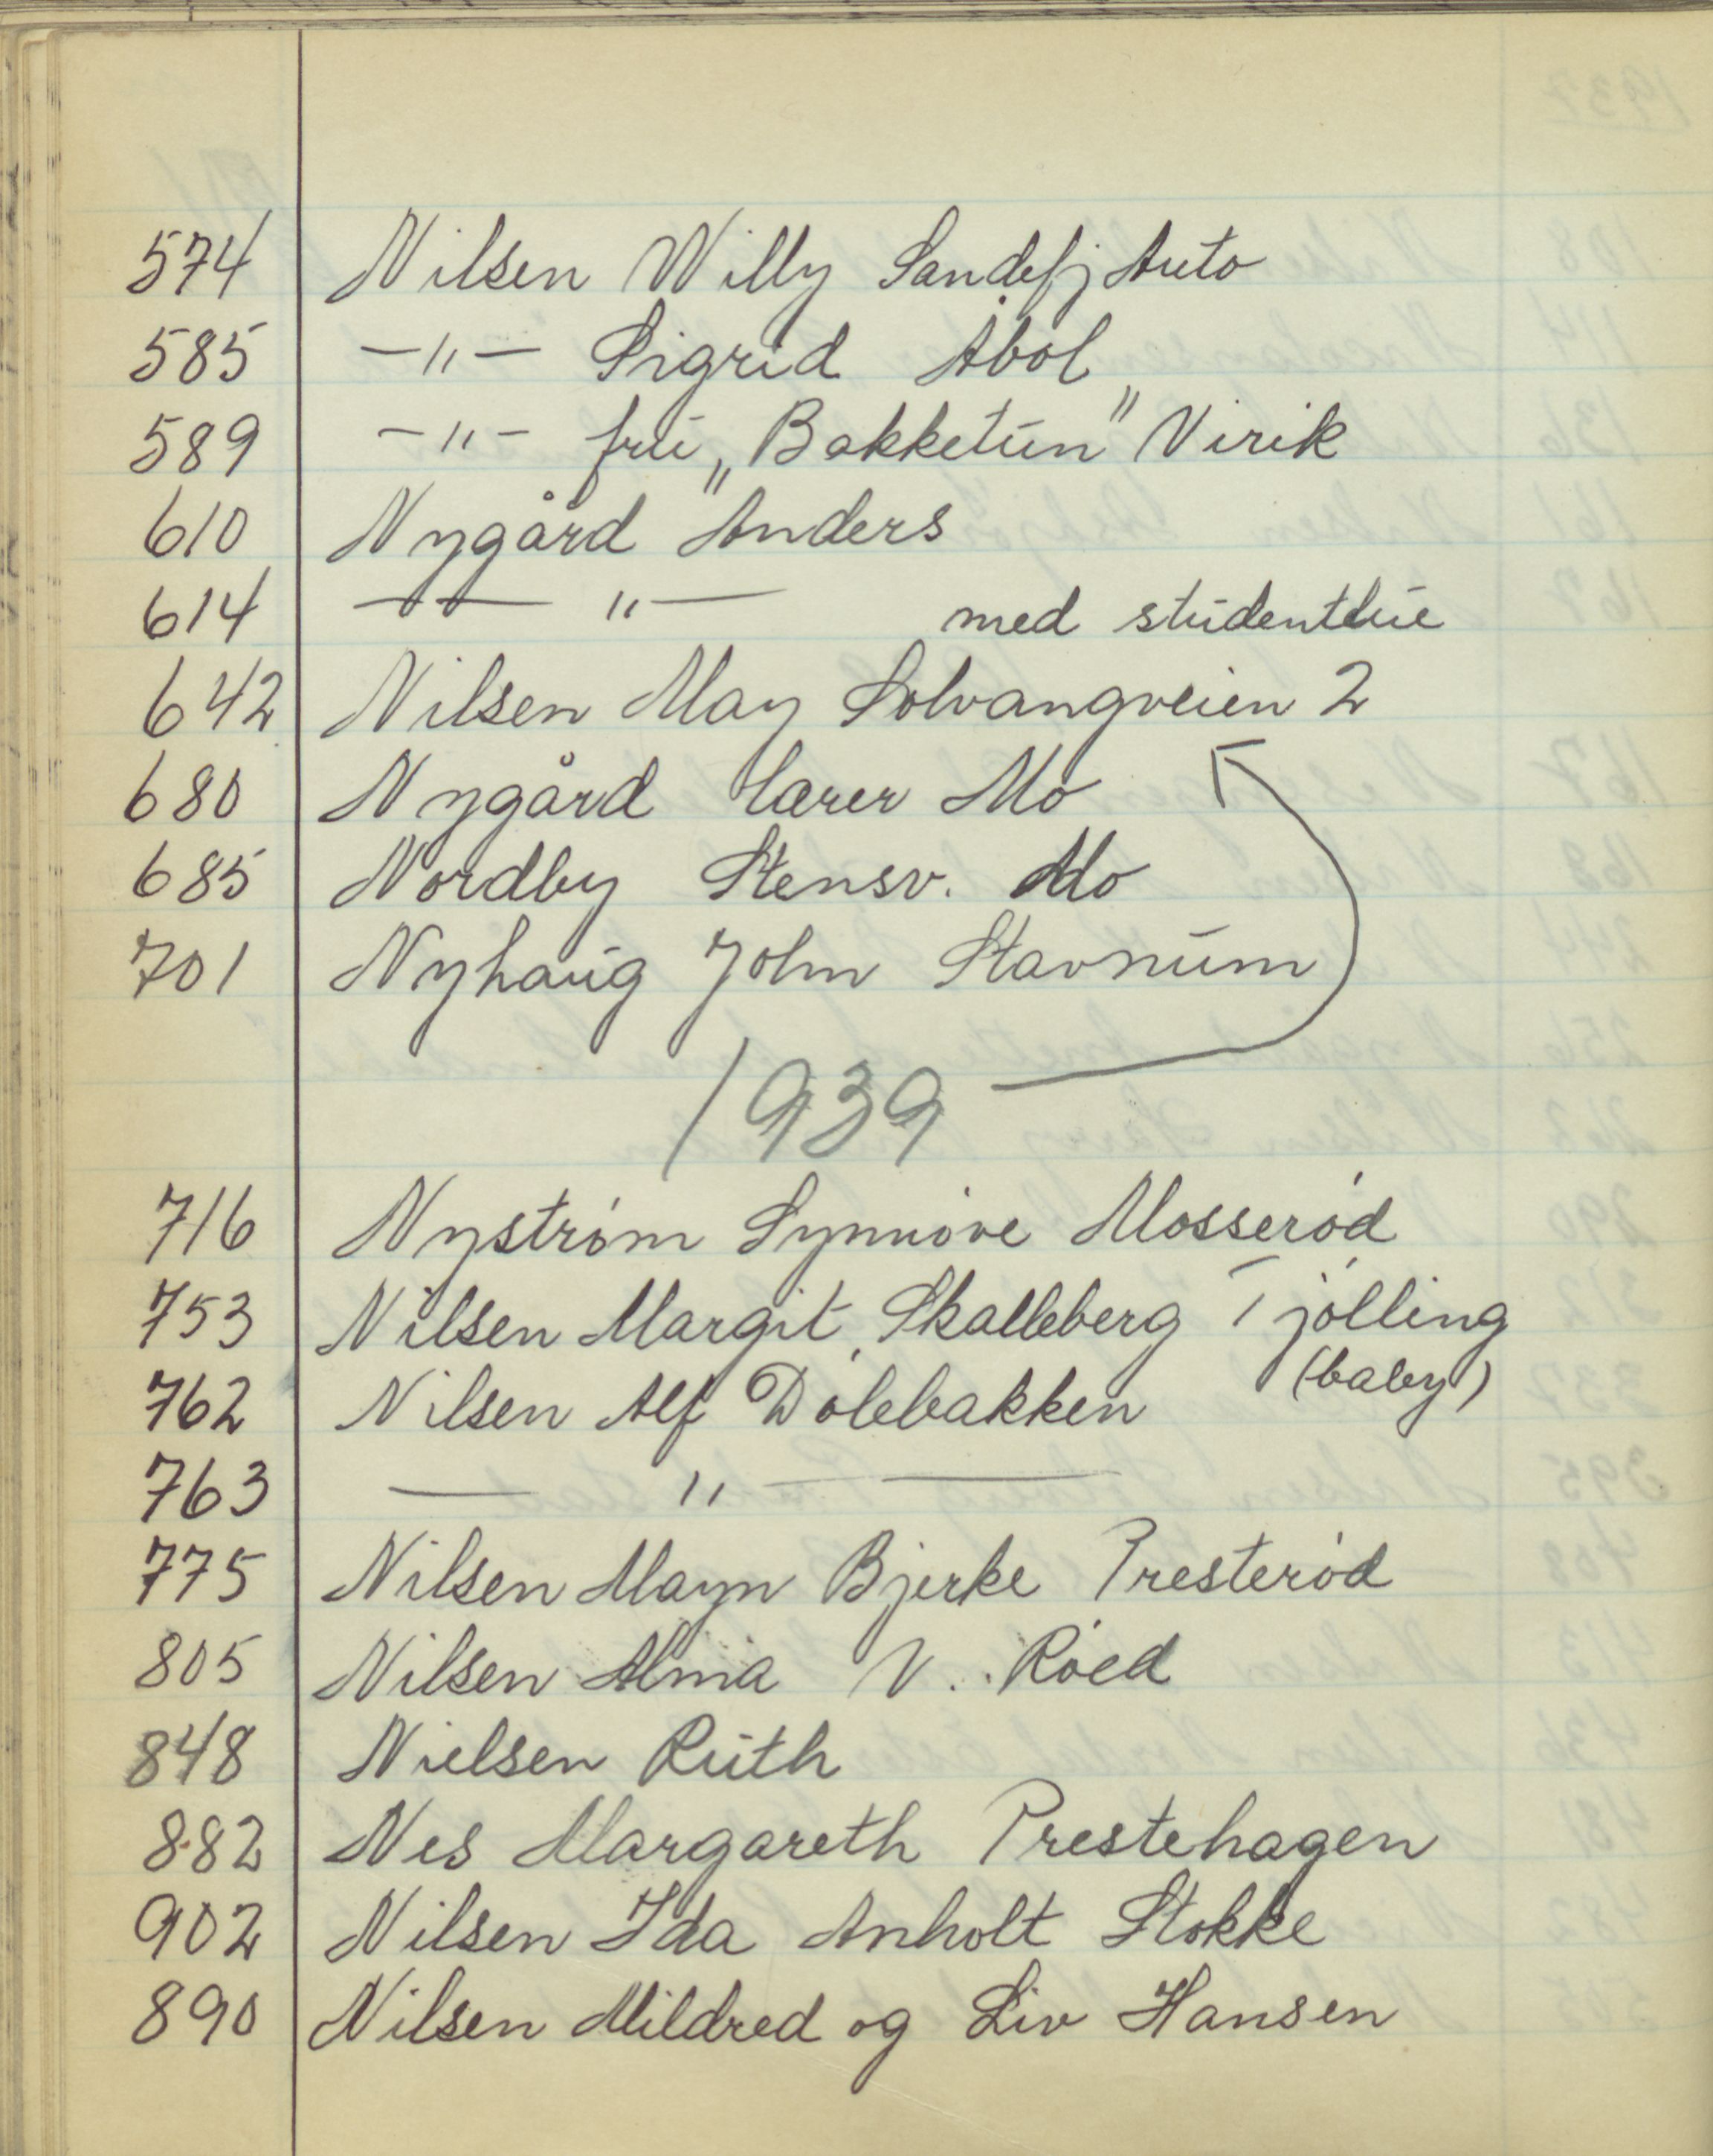 574 Nilsen Willy Sandefj Auto
585 —"— Sigrid Åbol
589 —"— frü „Bakketün" Virik
610 Nygård Anders
614 —— " — med stüdentlüe
642 Nilsen May Solvangveien 2
680 Nygård lærer Mo
685 Nordby Stensv. Mo
701 Nyhaüg John Stavnüm
1939
716 Nystrøm Synnøve Mosserød
753 Nilsen Margit, Skalleberg Tjølling
(baby)
762 Nilsen Alf Dølebakken
763 — " —
775 Nilsen Mayn Bjerke Presterød
805 Nilsen Alma V. Røed
848 Nielsen Rüth
882 Nes Margareth Prestehagen
902 Nilsen Ida Anholt Stokke
890 Nilsen Mildred og Liv Hansen